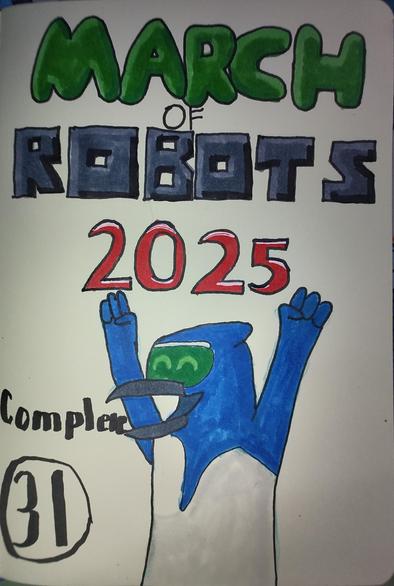 MARCH
OF
ROBOTS
2025
Complex
31